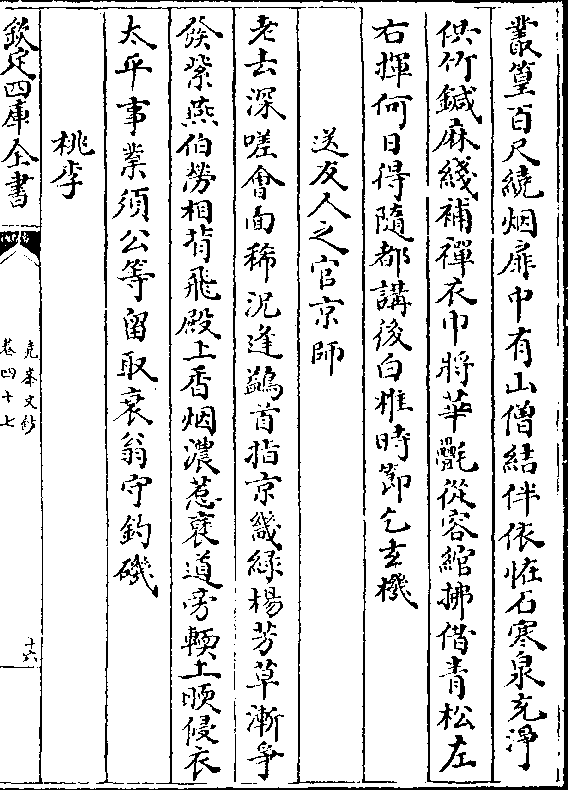 叢篁百尺繞烟扉中有山僧結伴依怪石寒泉充淨
供竹鍼麻綫補禪衣巾將華氎從容綰拂借青松左
右揮何日得隨都講後白椎時節乞玄機
送友人之官京師
老去深嗟會面稀況逢鷁首指京畿綠楊芳草漸爭
發紫燕伯勞相背飛殿上香烟濃惹褎道旁輭土順侵衣
太平事業須公等留取衰翁守釣磯
桃李
欽定四庫全書
堯峯文鈔
卷四十七
十六